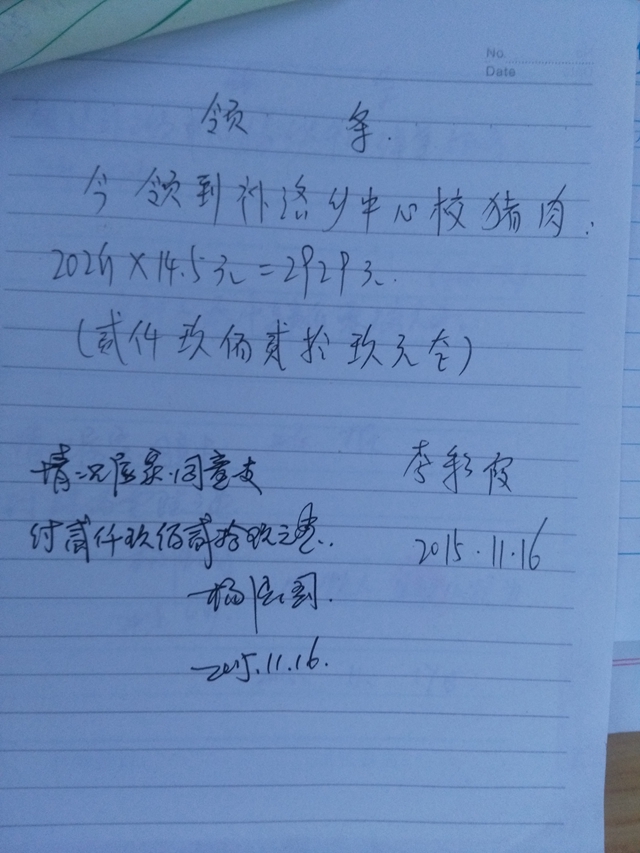 No.
Date
领 条.
今领到补洛乡中心校猪肉.
202斤×14.5元=2929元.
(贰仟玖佰贰拾玖元整)
情况属实.同意支
付贰仟玖佰贰拾玖元整.
李彩霞
2015.11.16
2015.11.16.